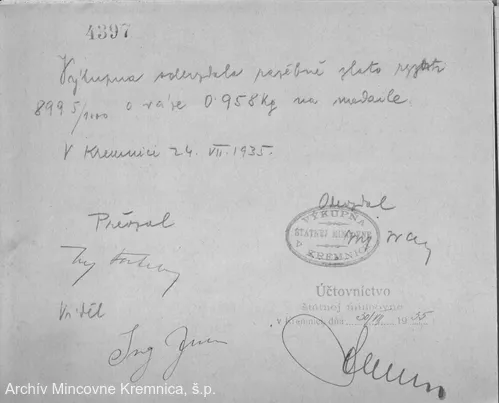 4397
Výkupna odevzdala ražebně zlato ryzosti
899 5/1000 o váze 0·958 kg na medaile.
V Kremnici 24. VII. 1935.
Odevzdal
Převzal
VÝKUPŇA
ŠTÁTNEJ MINCOVNE
V KREMNICI
Ing
Účtovníctvo
štátnej mincovne
v Kremnici, dňa 30/VII 1935
Viděl
Ing
Archív Mincovne Kremnica, š.p.